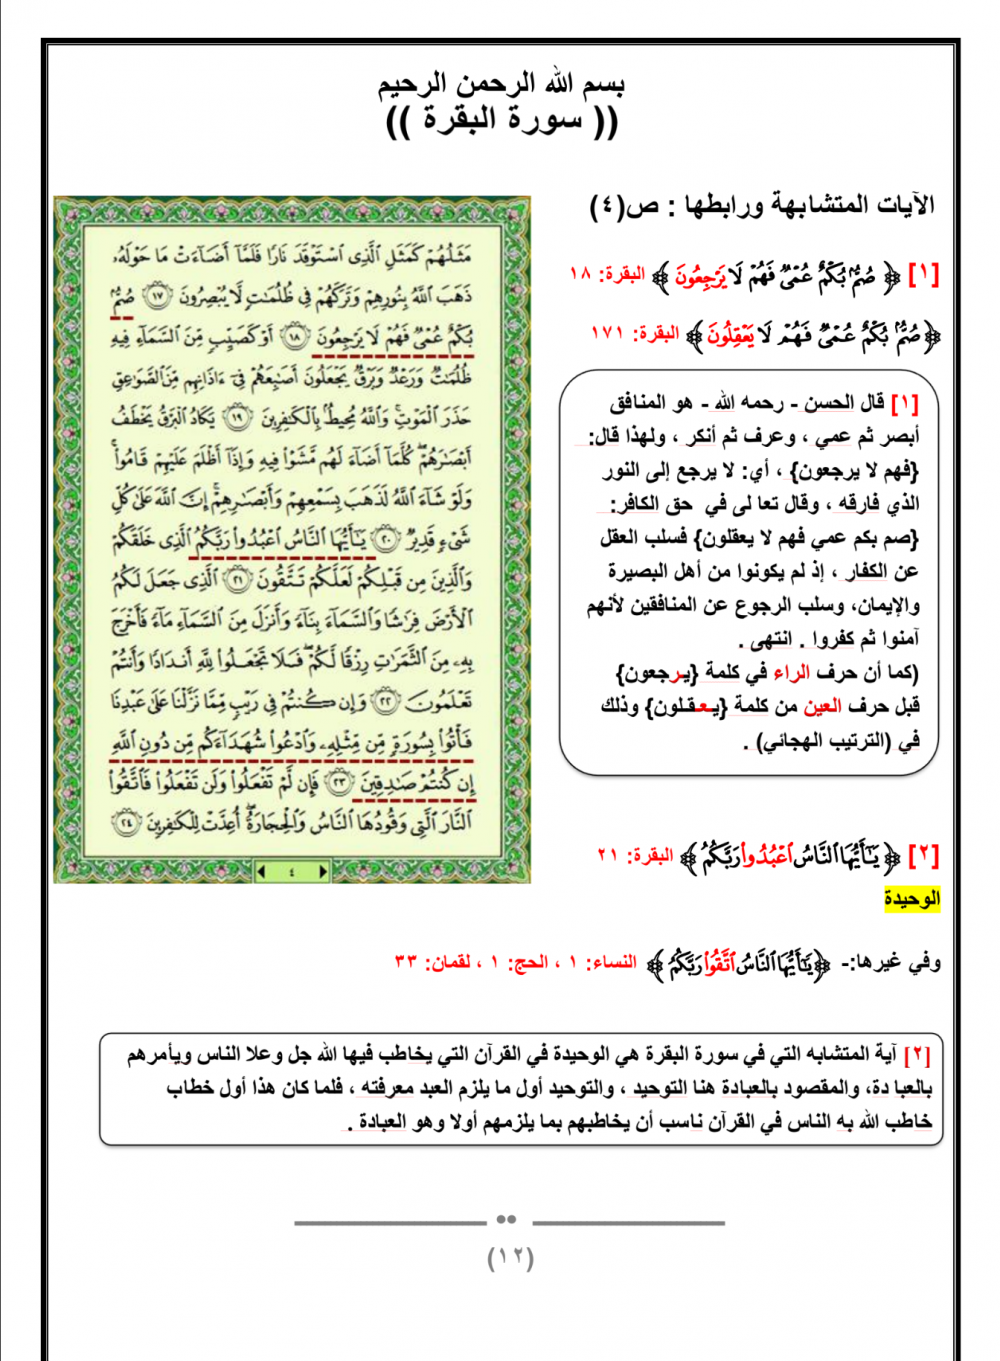 بسم الله الرحمن الرحيم
(( سورة البقرة ))
الآيات المتشابهة ورابطها : ص(٤)
[١] ﴿ صُمٌّ بُكْمٌ عُمْيٌ فَهُمْ لَا يَرْجِعُونَ ﴾ البقرة: ١٨
﴿ صُمٌّ بُكْمٌ عُمْيٌ فَهُمْ لَا يَعْقِلُونَ ﴾ البقرة: ١٧١
[١] قال الحسن - رحمه الله - هو المنافق
أبصر ثم عمي ، وعرف ثم أنكر ، ولهذا قال:
{فهم لا يرجعون} ، أي: لا يرجع إلى النور
الذي فارقه ، وقال تعا لى في حق الكافر:
{صم بكم عمي فهم لا يعقلون} فسلب العقل
عن الكفار ، إذ لم يكونوا من أهل البصيرة
والإيمان، وسلب الرجوع عن المنافقين لأنهم
آمنوا ثم كفروا . انتهى .
(كما أن حرف الراء في كلمة {يـرجعون}
قبل حرف العين من كلمة {يـعـقـلون} وذلك
في (الترتيب الهجائي) .
مَثَلُهُمْ كَمَثَلِ ٱلَّذِى ٱسْتَوْقَدَ نَارًا فَلَمَّآ أَضَآءَتْ مَا حَوْلَهُۥ
ذَهَبَ ٱللَّهُ بِنُورِهِمْ وَتَرَكَهُمْ فِى ظُلُمَٰتٍ لَّا يُبْصِرُونَ ١٧ صُمٌّۢ
بُكْمٌ عُمْىٌ فَهُمْ لَا يَرْجِعُونَ ١٨ أَوْ كَصَيِّبٍ مِّنَ ٱلسَّمَآءِ فِيهِ
ظُلُمَٰتٌ وَرَعْدٌ وَبَرْقٌ يَجْعَلُونَ أَصَٰبِعَهُمْ فِىٓ ءَاذَانِهِم مِّنَ ٱلصَّوَٰعِقِ
حَذَرَ ٱلْمَوْتِ ۚ وَٱللَّهُ مُحِيطٌۢ بِٱلْكَٰفِرِينَ ١٩ يَكَادُ ٱلْبَرْقُ يَخْطَفُ
أَبْصَٰرَهُمْ ۖ كُلَّمَآ أَضَآءَ لَهُم مَّشَوْا۟ فِيهِ وَإِذَآ أَظْلَمَ عَلَيْهِمْ قَامُوا۟ ۚ
وَلَوْ شَآءَ ٱللَّهُ لَذَهَبَ بِسَمْعِهِمْ وَأَبْصَٰرِهِمْ ۚ إِنَّ ٱللَّهَ عَلَىٰ كُلِّ
شَىْءٍ قَدِيرٌ ٢٠ يَٰٓأَيُّهَا ٱلنَّاسُ ٱعْبُدُوا۟ رَبَّكُمُ ٱلَّذِى خَلَقَكُمْ
وَٱلَّذِينَ مِن قَبْلِكُمْ لَعَلَّكُمْ تَتَّقُونَ ٢١ ٱلَّذِى جَعَلَ لَكُمُ
ٱلْأَرْضَ فِرَٰشًا وَٱلسَّمَآءَ بِنَآءً وَأَنزَلَ مِنَ ٱلسَّمَآءِ مَآءً فَأَخْرَجَ
بِهِۦ مِنَ ٱلثَّمَرَٰتِ رِزْقًا لَّكُمْ ۖ فَلَا تَجْعَلُوا۟ لِلَّهِ أَندَادًا وَأَنتُمْ
تَعْلَمُونَ ٢٢ وَإِن كُنتُمْ فِى رَيْبٍ مِّمَّا نَزَّلْنَا عَلَىٰ عَبْدِنَا
فَأْتُوا۟ بِسُورَةٍ مِّن مِّثْلِهِۦ وَٱدْعُوا۟ شُهَدَآءَكُم مِّن دُونِ ٱللَّهِ
إِن كُنتُمْ صَٰدِقِينَ ٢٣ فَإِن لَّمْ تَفْعَلُوا۟ وَلَن تَفْعَلُوا۟ فَٱتَّقُوا۟
ٱلنَّارَ ٱلَّتِى وَقُودُهَا ٱلنَّاسُ وَٱلْحِجَارَةُ ۖ أُعِدَّتْ لِلْكَٰفِرِينَ ٢٤
٤
[٢] ﴿ يَٰٓأَيُّهَا ٱلنَّاسُ ٱعْبُدُوا۟ رَبَّكُمُ ﴾ البقرة: ٢١
الوحيدة
وفي غيرها:- ﴿ يَٰٓأَيُّهَا ٱلنَّاسُ ٱتَّقُوا۟ رَبَّكُمُ ﴾ النساء: ١ ، الحج: ١ ، لقمان: ٣٣
[٢] آية المتشابه التي في سورة البقرة هي الوحيدة في القرآن التي يخاطب فيها الله جل وعلا الناس ويأمرهم
بالعبا دة، والمقصود بالعبادة هنا التوحيد ، والتوحيد أول ما يلزم العبد معرفته ، فلما كان هذا أول خطاب
خاطب الله به الناس في القرآن ناسب أن يخاطبهم بما يلزمهم أولا وهو العبادة .
(١٢)